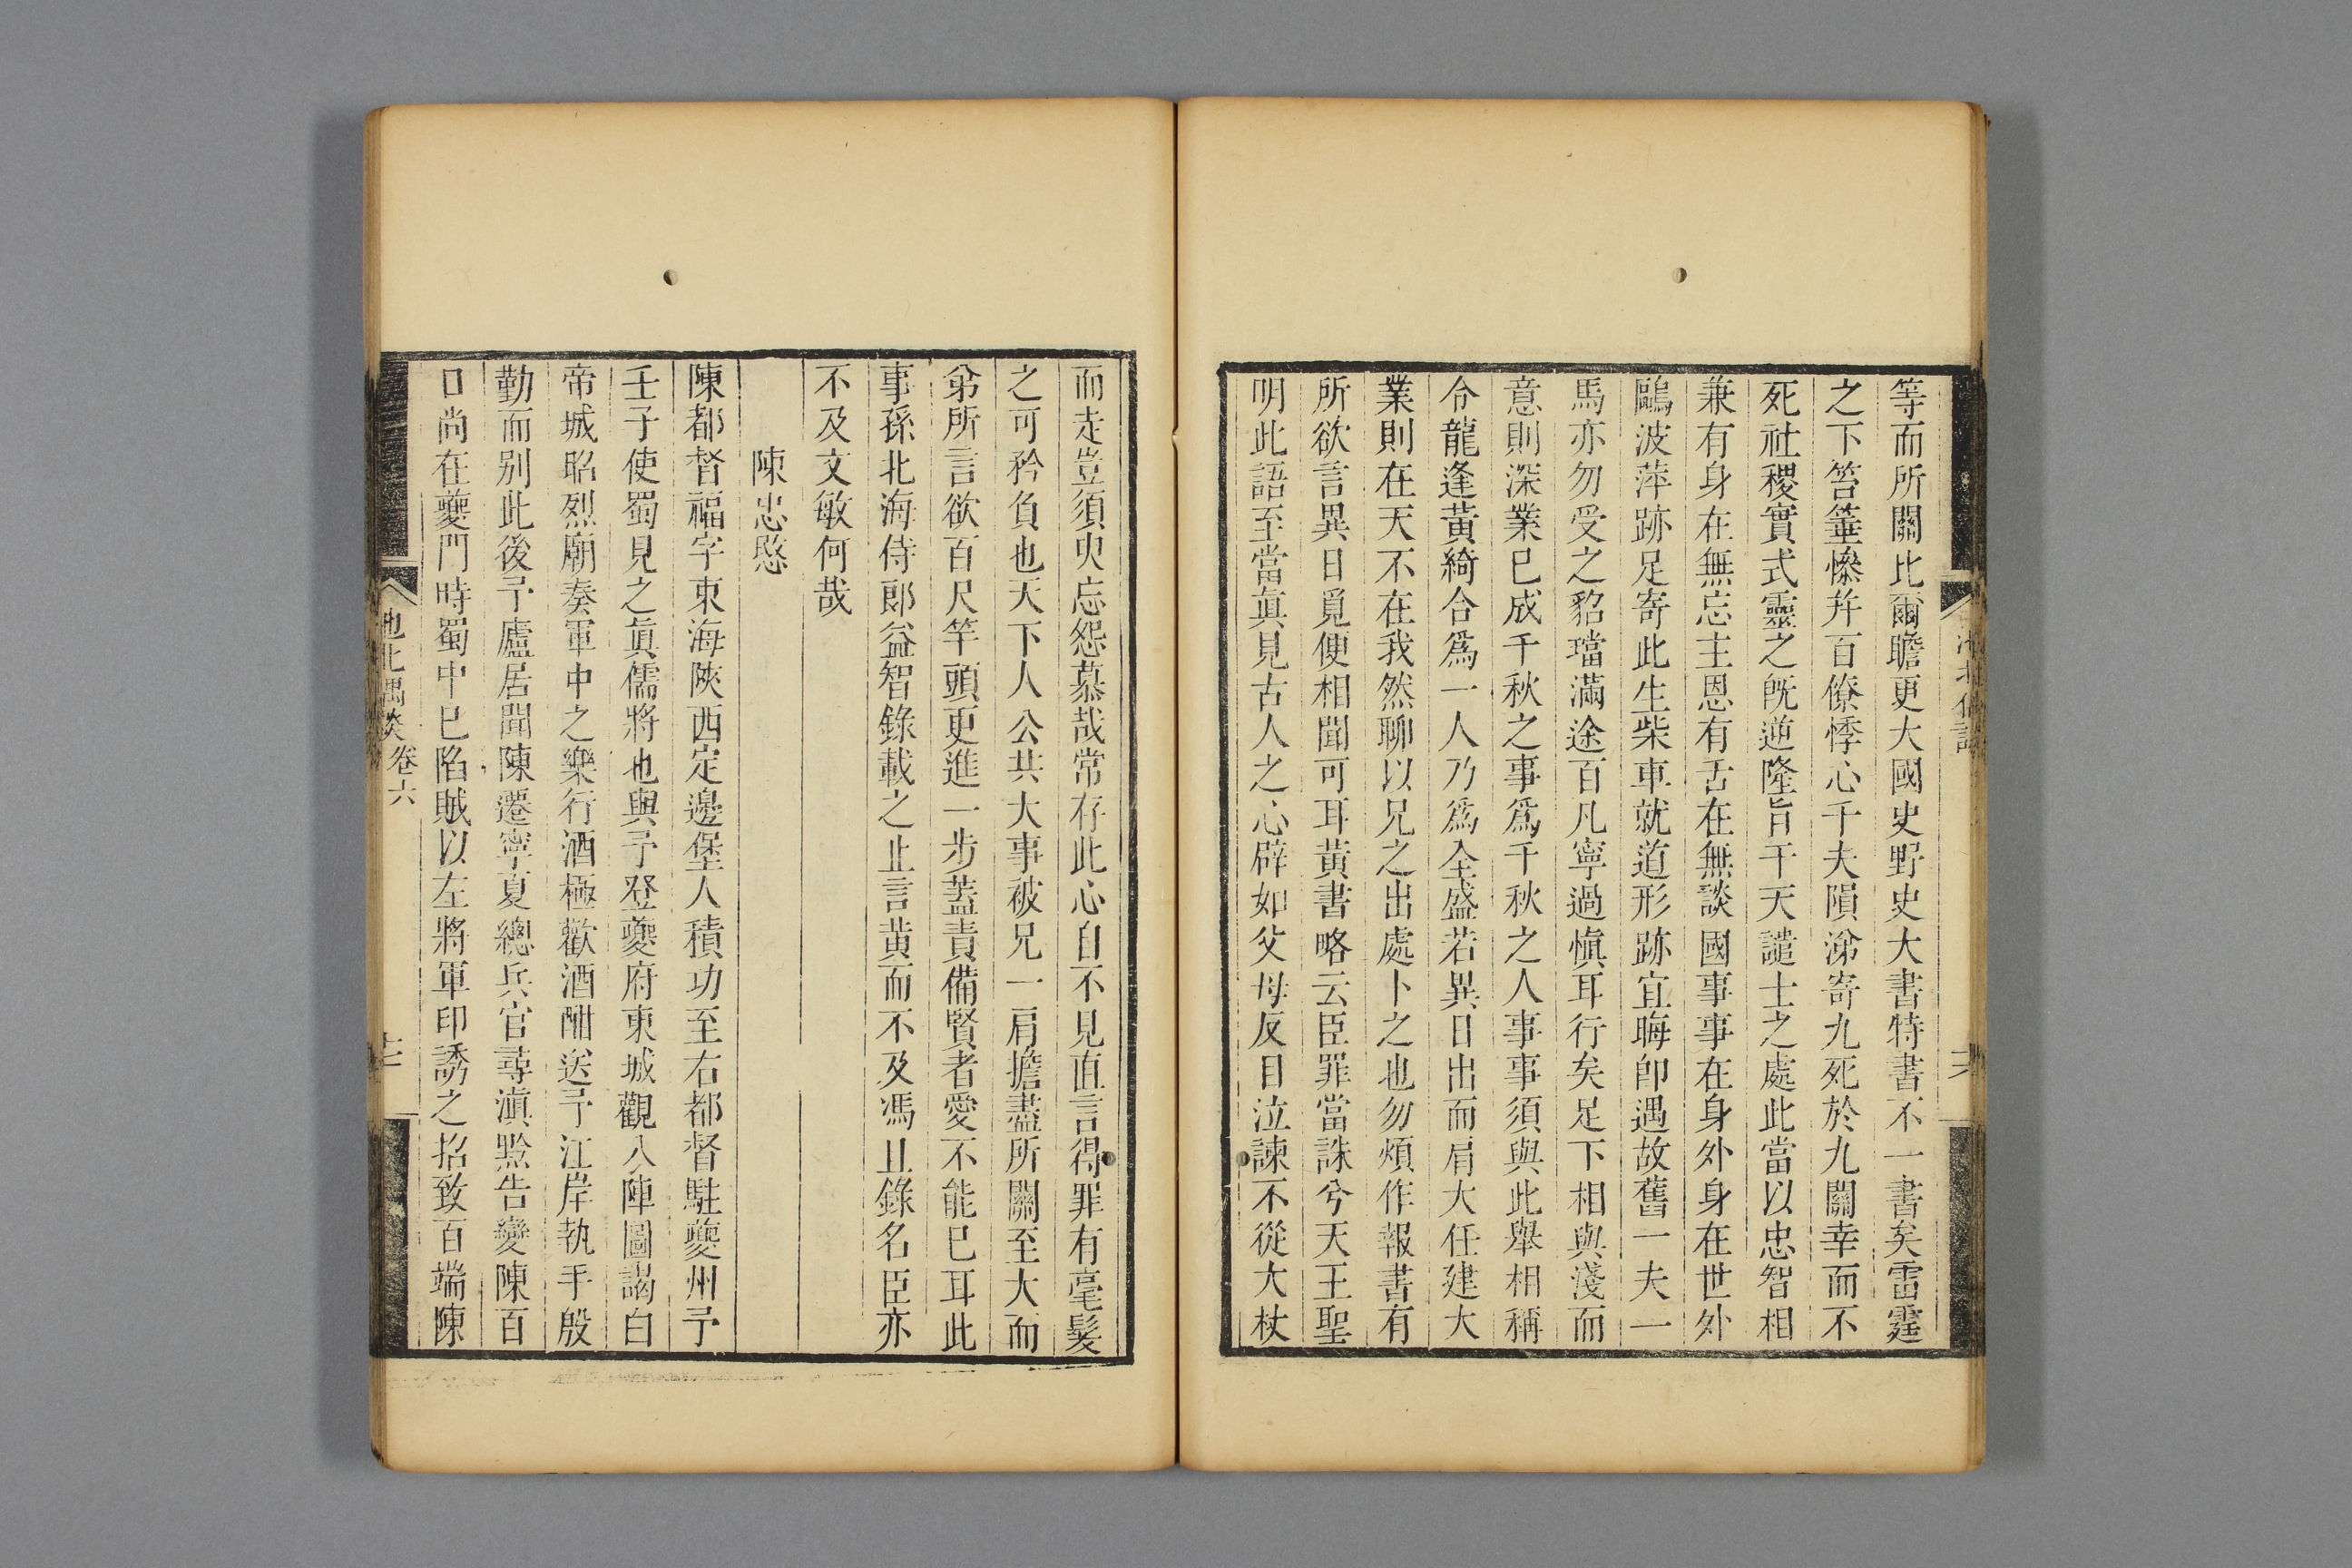 等而所關比爾瞻更大國史野史大書特書不一書矣雷霆
之下笞箠慘幷百僚悸心千夫隕涕寄九死於九關幸而不
死社稷實式靈之旣逆隆旨干天譴士之處此當以忠智相
兼有身在無忘主恩有舌在無談國事事在身外身在世外
鷗波萍跡足寄此生柴車就道形跡宜晦卽遇故舊一夫一
馬亦勿受之貂璫滿途百凡寧過愼耳行矣足下相與淺而
意則深業已成千秋之事爲千秋之人事事須與此舉相稱
令龍逢黃綺合爲一人乃爲全盛若異日出而肩大任建大
業則在天不在我然聊以兄之出處卜之也勿煩作報書有
所欲言異日覓便相聞可耳黃書略云臣罪當誅兮天王聖
明此語至當眞見古人之心辟如父母反目泣諫不從大杖
而走豈須臾忘怨慕哉常存此心自不見直言得罪有毫髮
之可矜負也天下人公共大事被兄一肩擔盡所關至大而
弟所言欲百尺竿頭更進一步葢責備賢者愛不能已耳此
事孫北海侍郎益智錄載之止言黃而不及馮且錄名臣亦
不及文敏何哉
陳忠愍
陳都督福字東海陝西定邊堡人積功至右都督駐夔州予
壬子使蜀見之眞儒將也與予登夔府東城觀八陣圖謁白
帝城昭烈廟奏軍中之樂行酒極歡酒酣送予江岸執手殷
勤而别此後予廬居聞陳遷寧夏總兵官尋滇黔告變陳百
口尚在夔門時蜀中已陷賊以左將軍印誘之招致百端陳
池北偶談 卷六